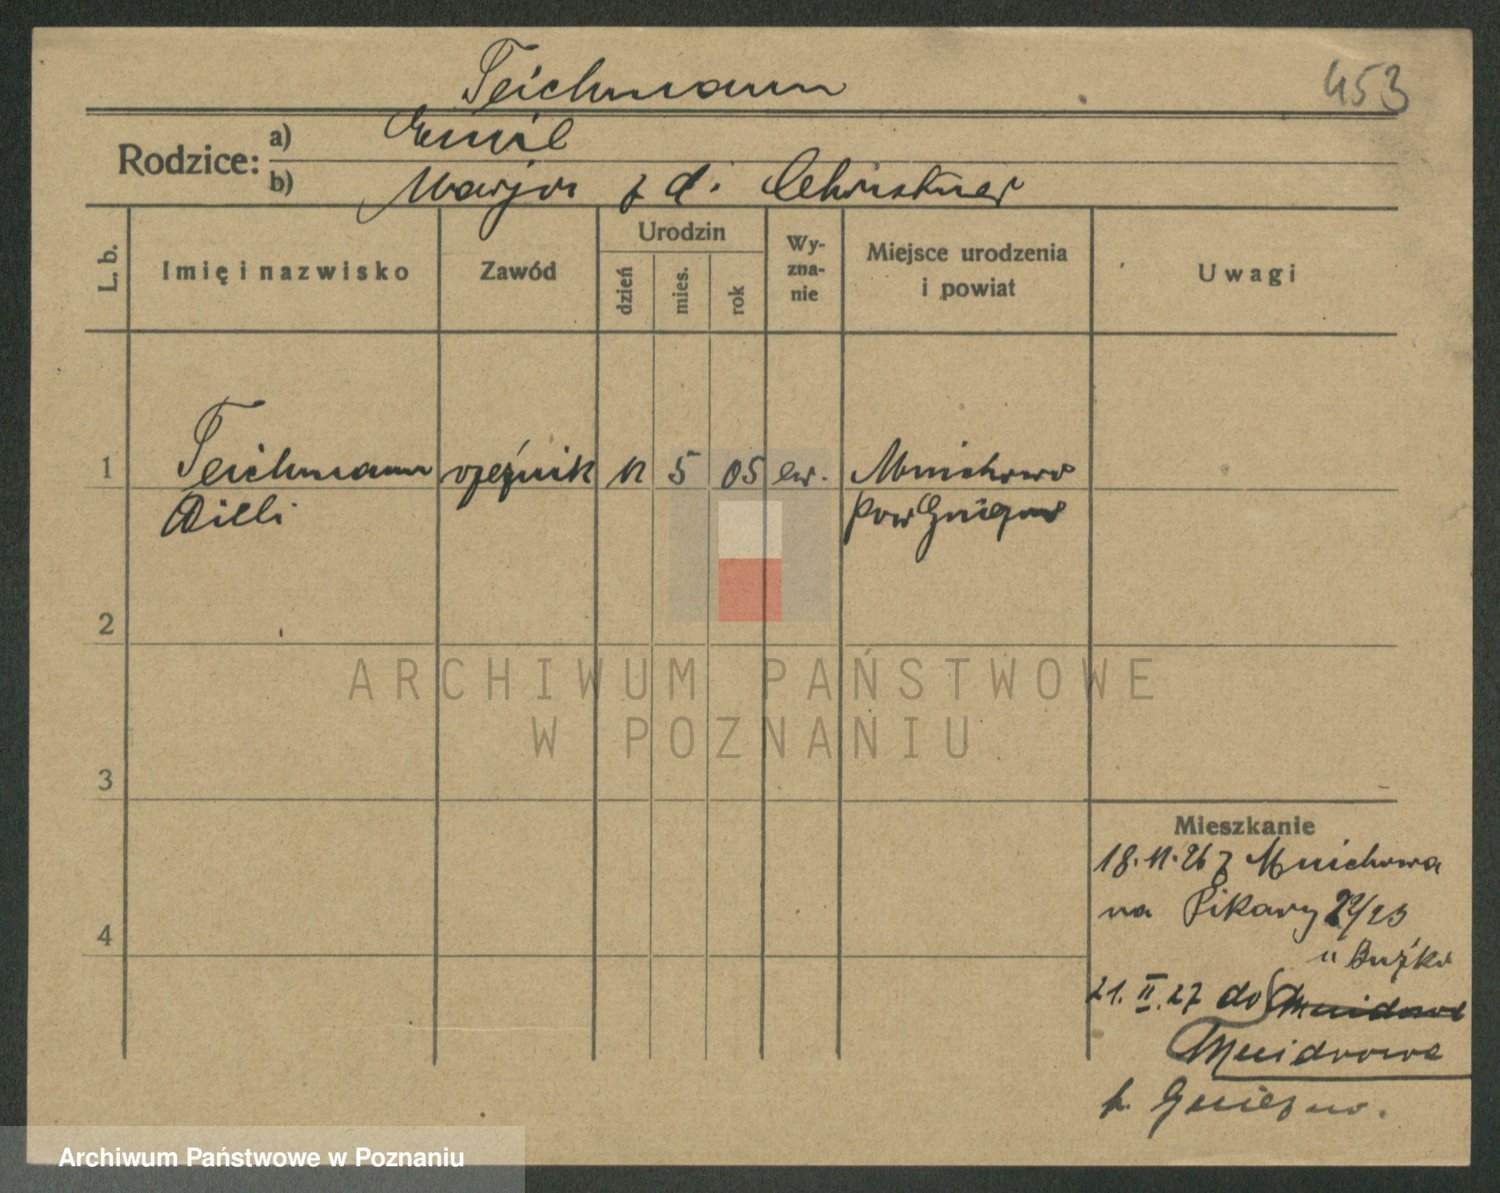 Teichmann
453
Rodzice: a) Emil
b) Marja z d. Christner
L. b.
Imię i nazwisko
Zawód
Urodzin
dzień
mies.
rok
Wy-
zna-
nie
Miejsce urodzenia
i powiat
Uwagi
1 Teichmann rzeźnik 11 5 05 ew. Mnichowo
Willi pow Gniezno
2
ARCHIWUM PAŃSTWOWE
W POZNANIU
3
4
Mieszkanie
18.11.26 z Mnichowa
na Pikary 22/23
u Buźko
21.II.27 do Mnichowo
Mnichowo
p. Gniezno.
Archiwum Państwowe w Poznaniu